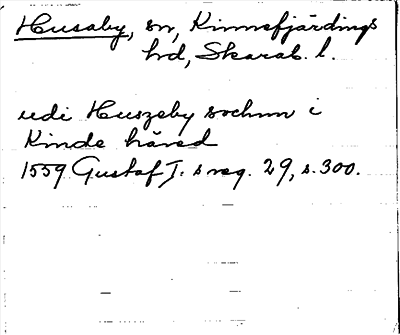 Husaby, sn, Kinnefjärdings
hd, Skarab. l.
udi Huszeby sochnn i
Kinde häred
1559 Gustaf I:s reg. 29, s. 300.